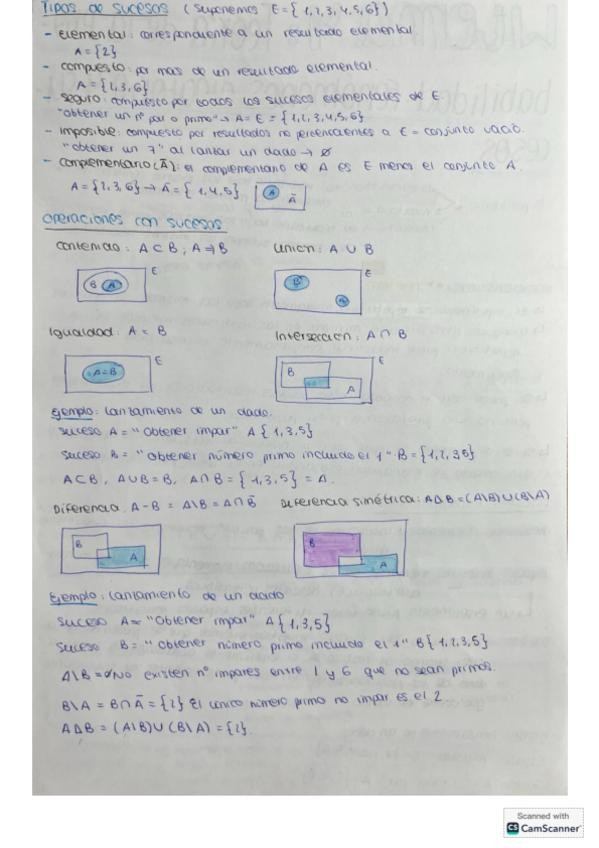 Tipos de sucesos (suponemos E = {1,2,3,4,5,6})
- elemental: correspondiente a un resultado elemental.
A = {2}
- compuesto: por mas de un resultado elemental.
A = {2,3,6}
- seguro: compuesto por todos los sucesos elementales de E
"obtener un nº par o primo" → A = E = {1,2,3,4,5,6}
- imposible: compuesto por resultados no pertenecientes a E = conjunto vacío.
"obtener un 7" al lanzar un dado → ∅
- complementario (Ā): el complementario de A es E menos el conjunto A.
A = {2,3,6} → Ā = {1,4,5}
A Ā
Operaciones con sucesos
contenido: A ⊂ B, A ⇒ B
Unión: A ∪ B
B A E
B A E
Igualdad: A = B
Intersección: A ∩ B
A=B E
B A E
Ejemplo: Lanzamiento de un dado.
suceso A = "Obtener impar" A {1,3,5}
suceso B = "Obtener número primo incluido el 1" · B = {1,2,3,5}
A⊂B, A∪B = B, A∩B = {1,3,5} = A.
Diferencia A-B = A\B = A∩B̄
Diferencia simétrica: A∆B = (A\B)∪(B\A)
B A
B A
Ejemplo: Lanzamiento de un dado
suceso A = "Obtener impar" A {1,3,5}
suceso B = "Obtener número primo incluido el 1" B {1,2,3,5}
A\B = ∅ No existen nº impares entre 1 y 6 que no sean primos.
B\A = B∩Ā = {2} El único número primo no impar es el 2
A∆B = (A\B)∪(B\A) = {2}.
Scanned with
CS CamScanner